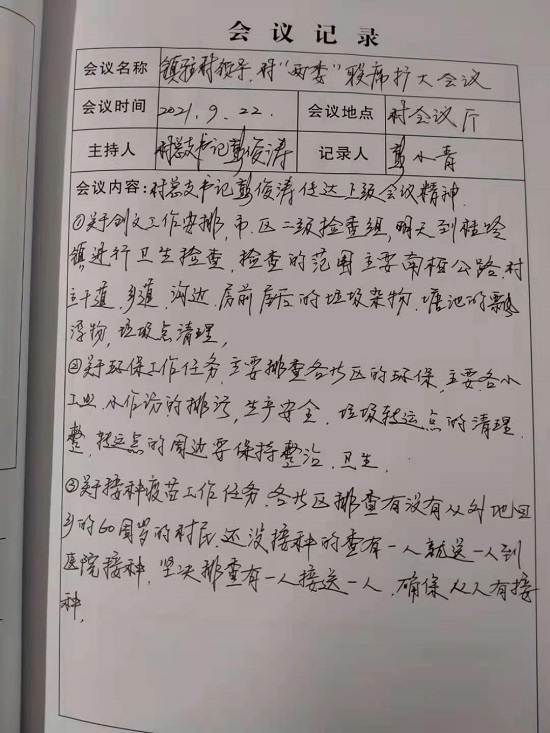 会议记录
会议名称 镇驻村领导、村“两委”联席扩大会议
会议时间 2021.9.22. 会议地点 村会议厅
主持人 村总支书记彭俊涛 记录人 彭小青
会议内容:村总支书记彭俊涛传达上级会议精神.
①关于创文工作安排,市、区二级检查组,明天到桂岭
镇进行卫生检查,检查的范围主要南桓公路,村
主干道、乡道、沟边、房前屋后的垃圾杂物、塘池的飘
浮物,垃圾点清理,
②关于环保工作任务,主要排查各片区的环保,主要各小
工业、小作坊的排污,生产安全,垃圾转运点的清理.
整,转运点的周边要保持整治、卫生.
③关于接种疫苗工作任务,各片区排查有没有从外地回
乡的60周岁的村民,还没接种的查有一人就送一人到
医院接种,坚决排查有一人接送一人,确保人人有接
种.